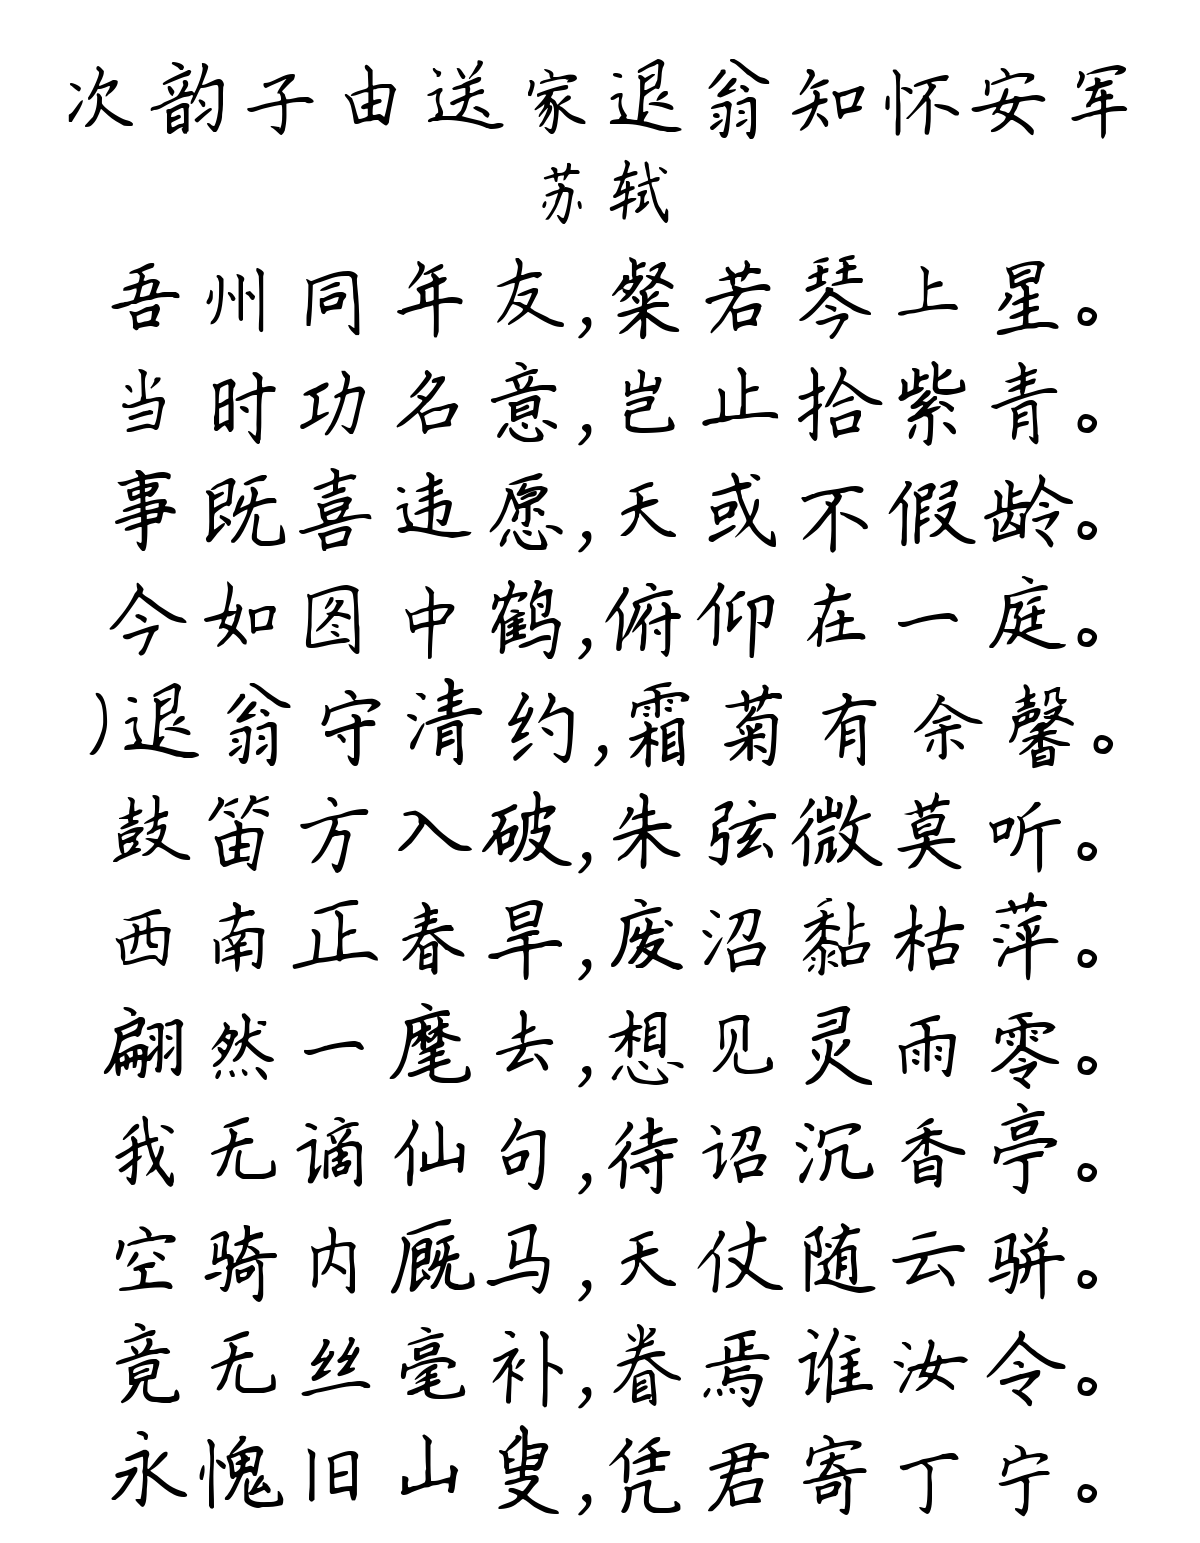 次韵子由送家退翁知怀安军
苏轼
吾州同年友,粲若琴上星。
当时功名意,岂止拾紫青。
事既喜违愿,天或不假龄。
今如图中鹤,俯仰在一庭。
)退翁守清约,霜菊有余馨。
鼓笛方入破,朱弦微莫听。
西南正春旱,废沼黏枯萍。
翩然一麾去,想见灵雨零。
我无谪仙句,待诏沉香亭。
空骑内厩马,天仗随云骈。
竟无丝毫补,眷焉谁汝令。
永愧旧山叟,凭君寄丁宁。